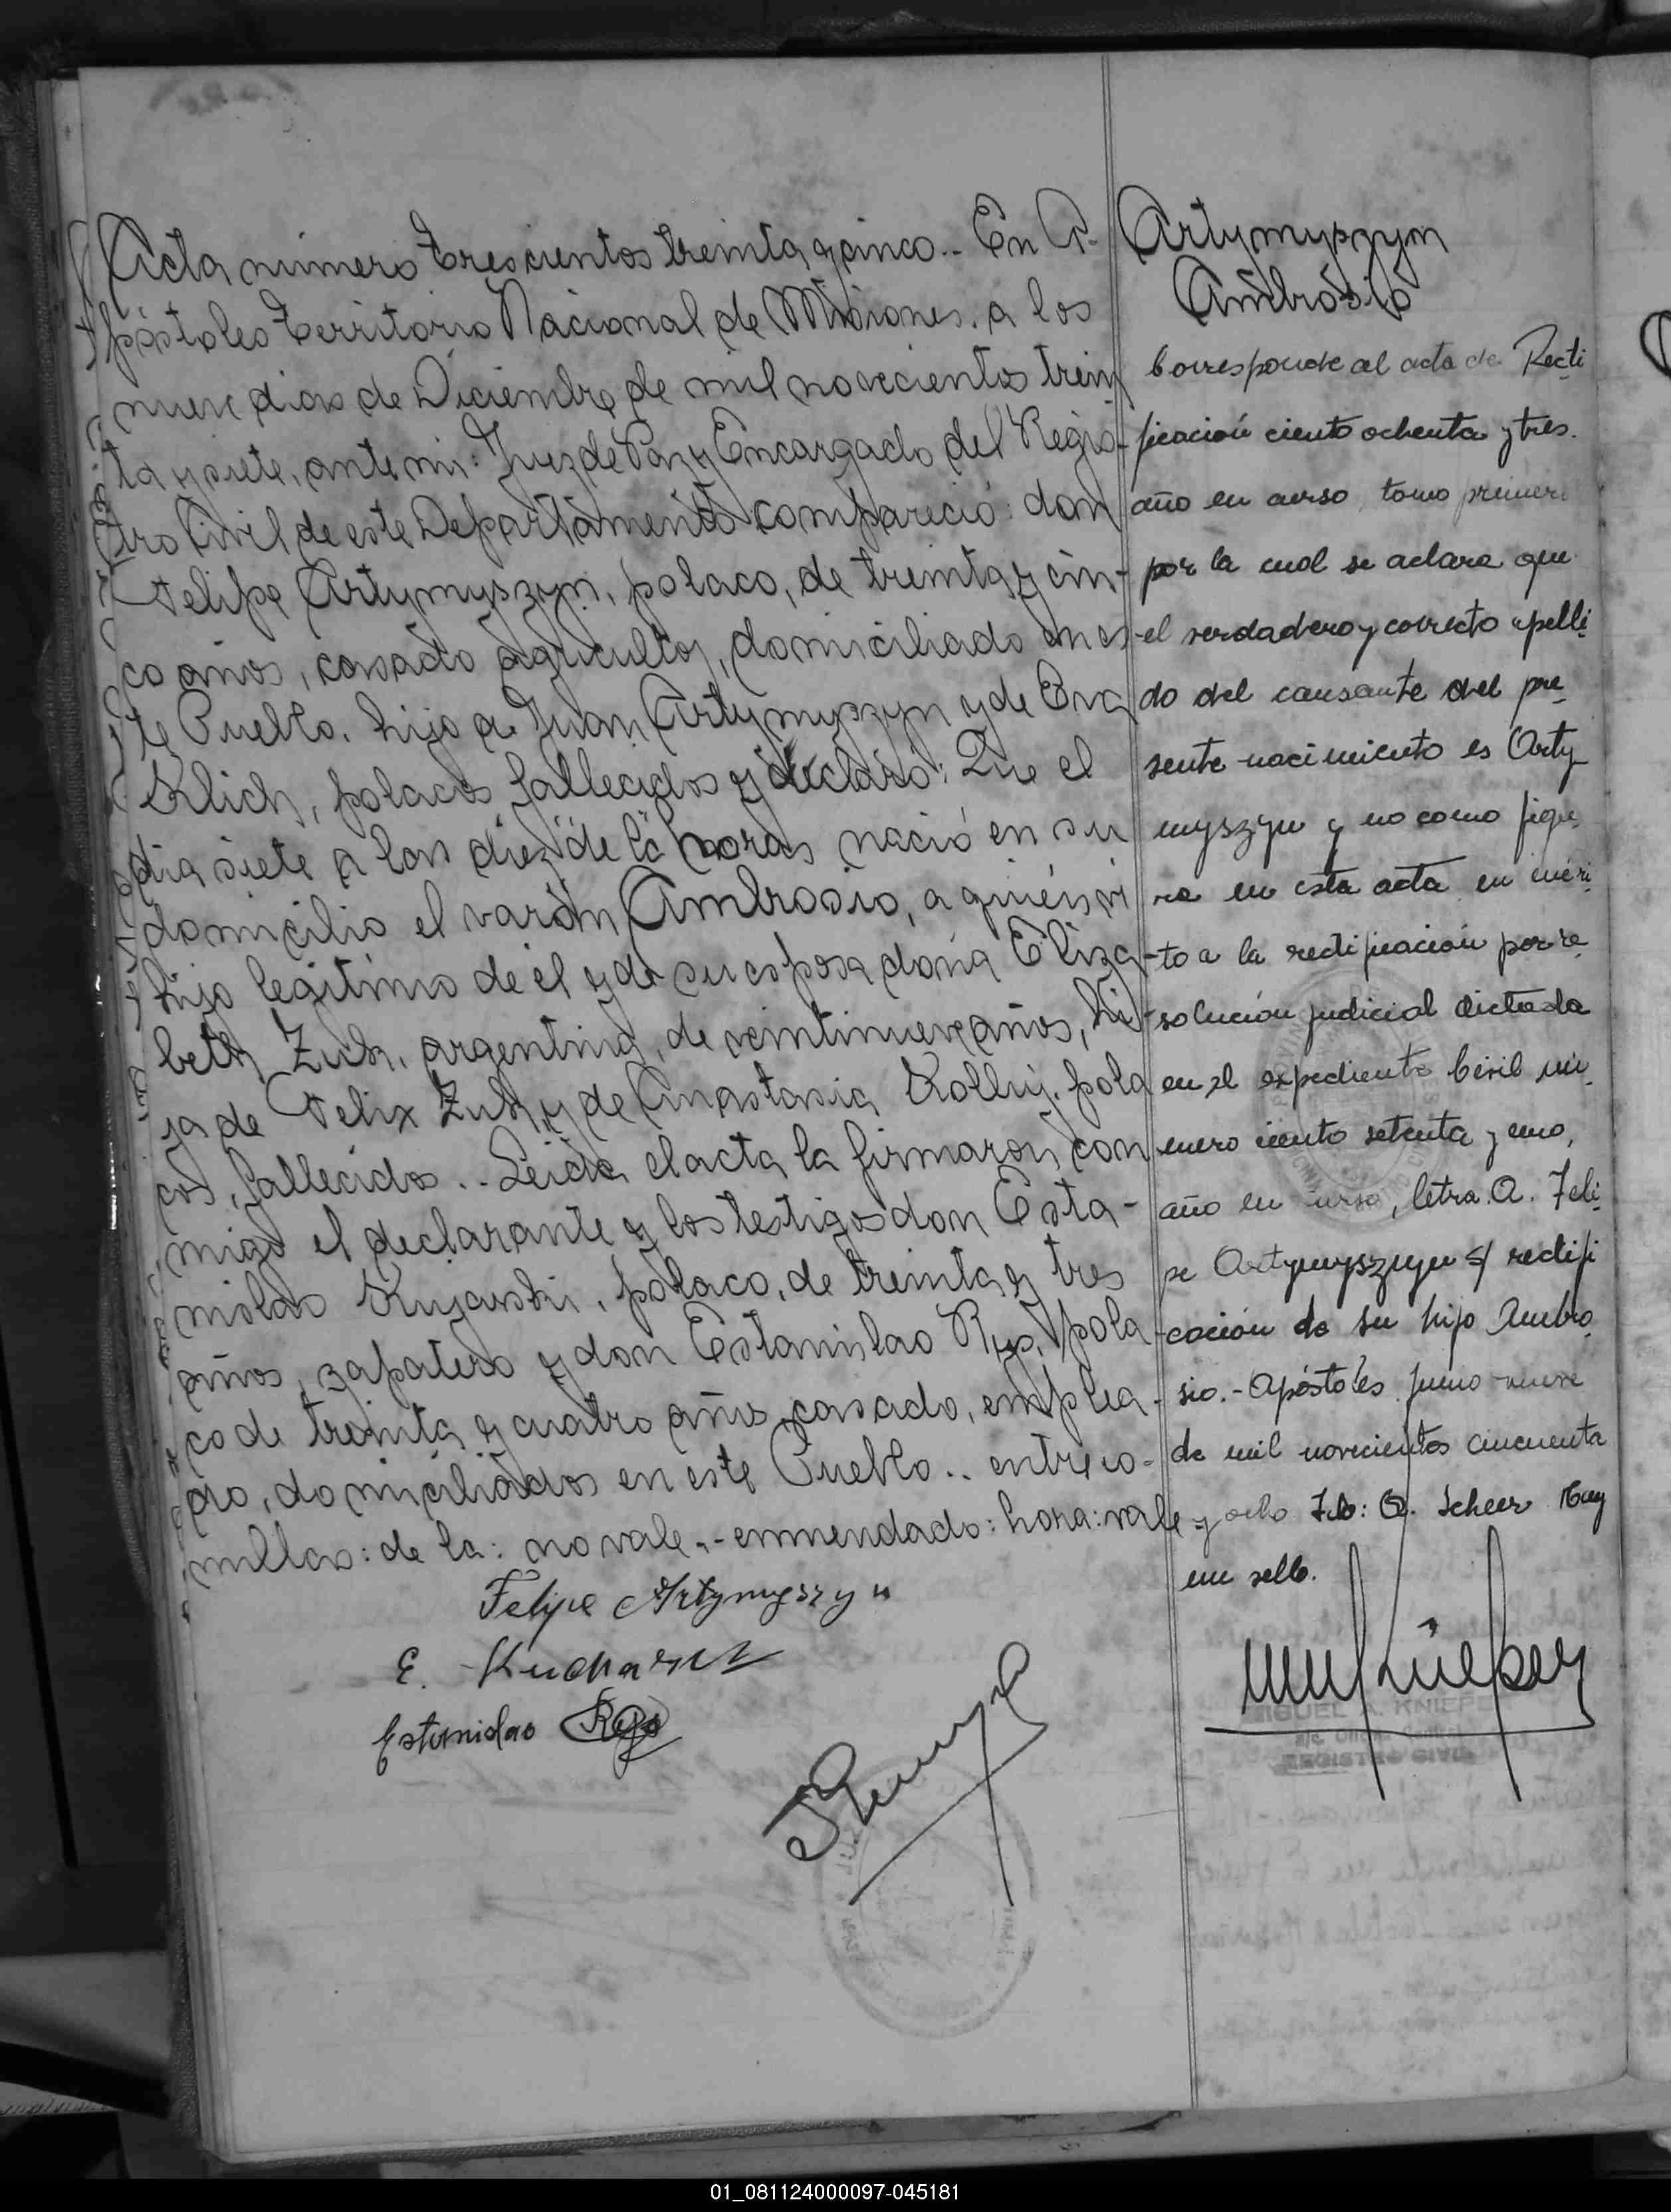 Acta número trescientos treinta y cinco.- En A-
póstoles Territorio Nacional de Misiones, a los
nueve dias de Diciembre de mil novecientos trein
ta y siete, ante mi: Juez de Paz y Encargado del Regis-
tro Civil de este Departamento compareció: don
Felipe Artymyszyn, polaco, de treinta y cin-
co años, casado agricultor, domiciliado en es-
te Pueblo, hijo de Juan Artymyszyn y de Eva
Klich, polacos fallecidos y declaró: Que el
dia siete a las diez de la horas nació en su
domicilio el varón Ambrosio, a quién vi
hijo legitimo de él y de su esposa doña Eliza-
beth Zuk, argentina, de veintinueve años, hi-
ja de Felix Zuk y de Anastasia pola
cos, fallecidos.. Leida el acta la firmaron con
migo el declarante y los testigos don Esta-
nislao Kujarski, polaco, de treinta y tres
años, zapatero y don Estanislao Rys, pola
co de treinta y cuatro años, casado, emplea-
do, domiciliados en este Pueblo.. entreco-
millas: de la: no vale.- enmendado: hora: vale
Felipe Artymyszyn
E.
Estanislao Rys
Artymypzyn
Ambrosio
Corresponde al acta de Recti
ficación ciento ochenta y tres.
año en curso, tomo primero
por la cual se aclara que
el verdadero y correcto apelli
do del causante del pre
sente nacimiento es Arty
myszyn y no como figu
ra en esta acta en méri
to a la rectificación por re
solución judicial dictada
en el expediente Civil nú
mero ciento setenta y uno,
año en curso, letra. A. Feli
pe Artymyszyn s/ rectifi
cación de su hijo Ambro
sio.- Apóstoles, junio nueve
de mil novecientos cincuenta
y ocho Fdo: O. Scheer Hay
un sello.
MIGUEL A. KNIEPE
REGISTRO CIVIL
01_081124000097-045181